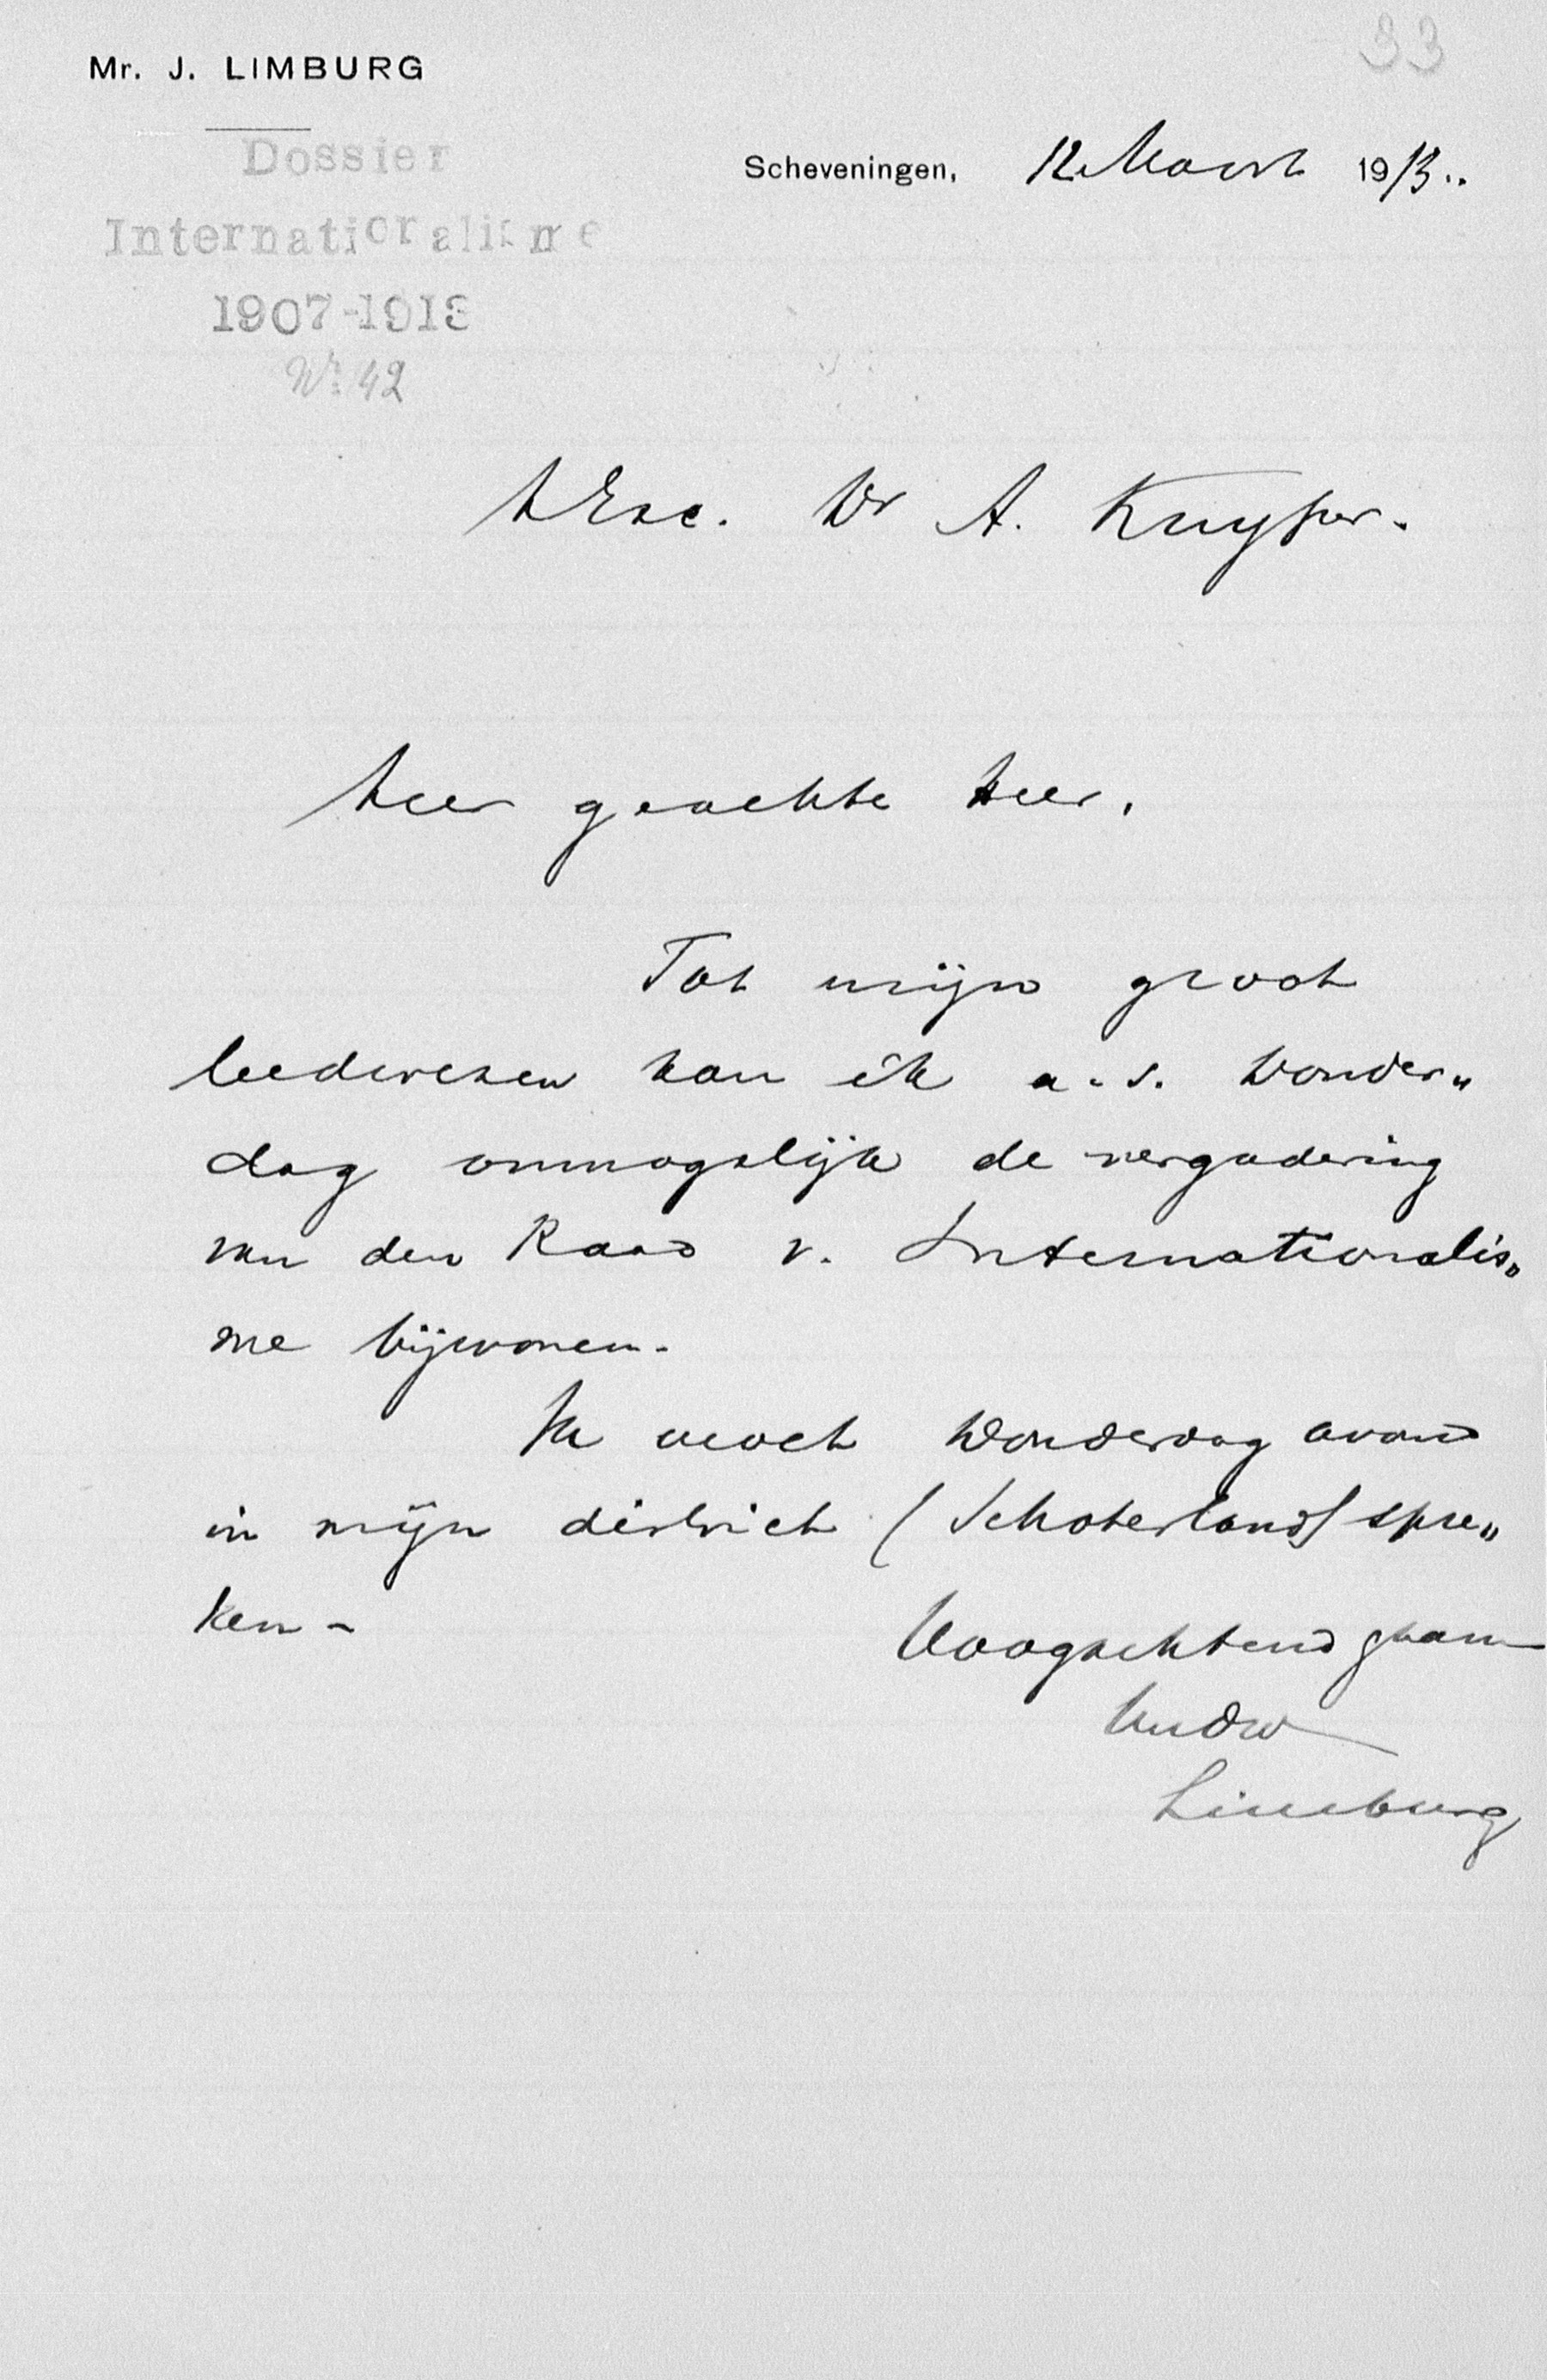 33
Mr. J. LIMBURG
Scheveningen, 12 Maart 1913..
Dossier
Internationalisme
1907-1913
Nº 42
ZExc. Dr A. Kuyper.
Zeer geachte Heer,
Tot mijn groot
leedwezen kan ik a.s. Donder„
dag onmogelijk de vergadering
van den Raad v. Internationalis„
me bijwonen.
Ik moet Donderdag avond
in mijn district (Schoterland) spre„
ken -
Hoogachtend gaarne
Uwdw
Limburg